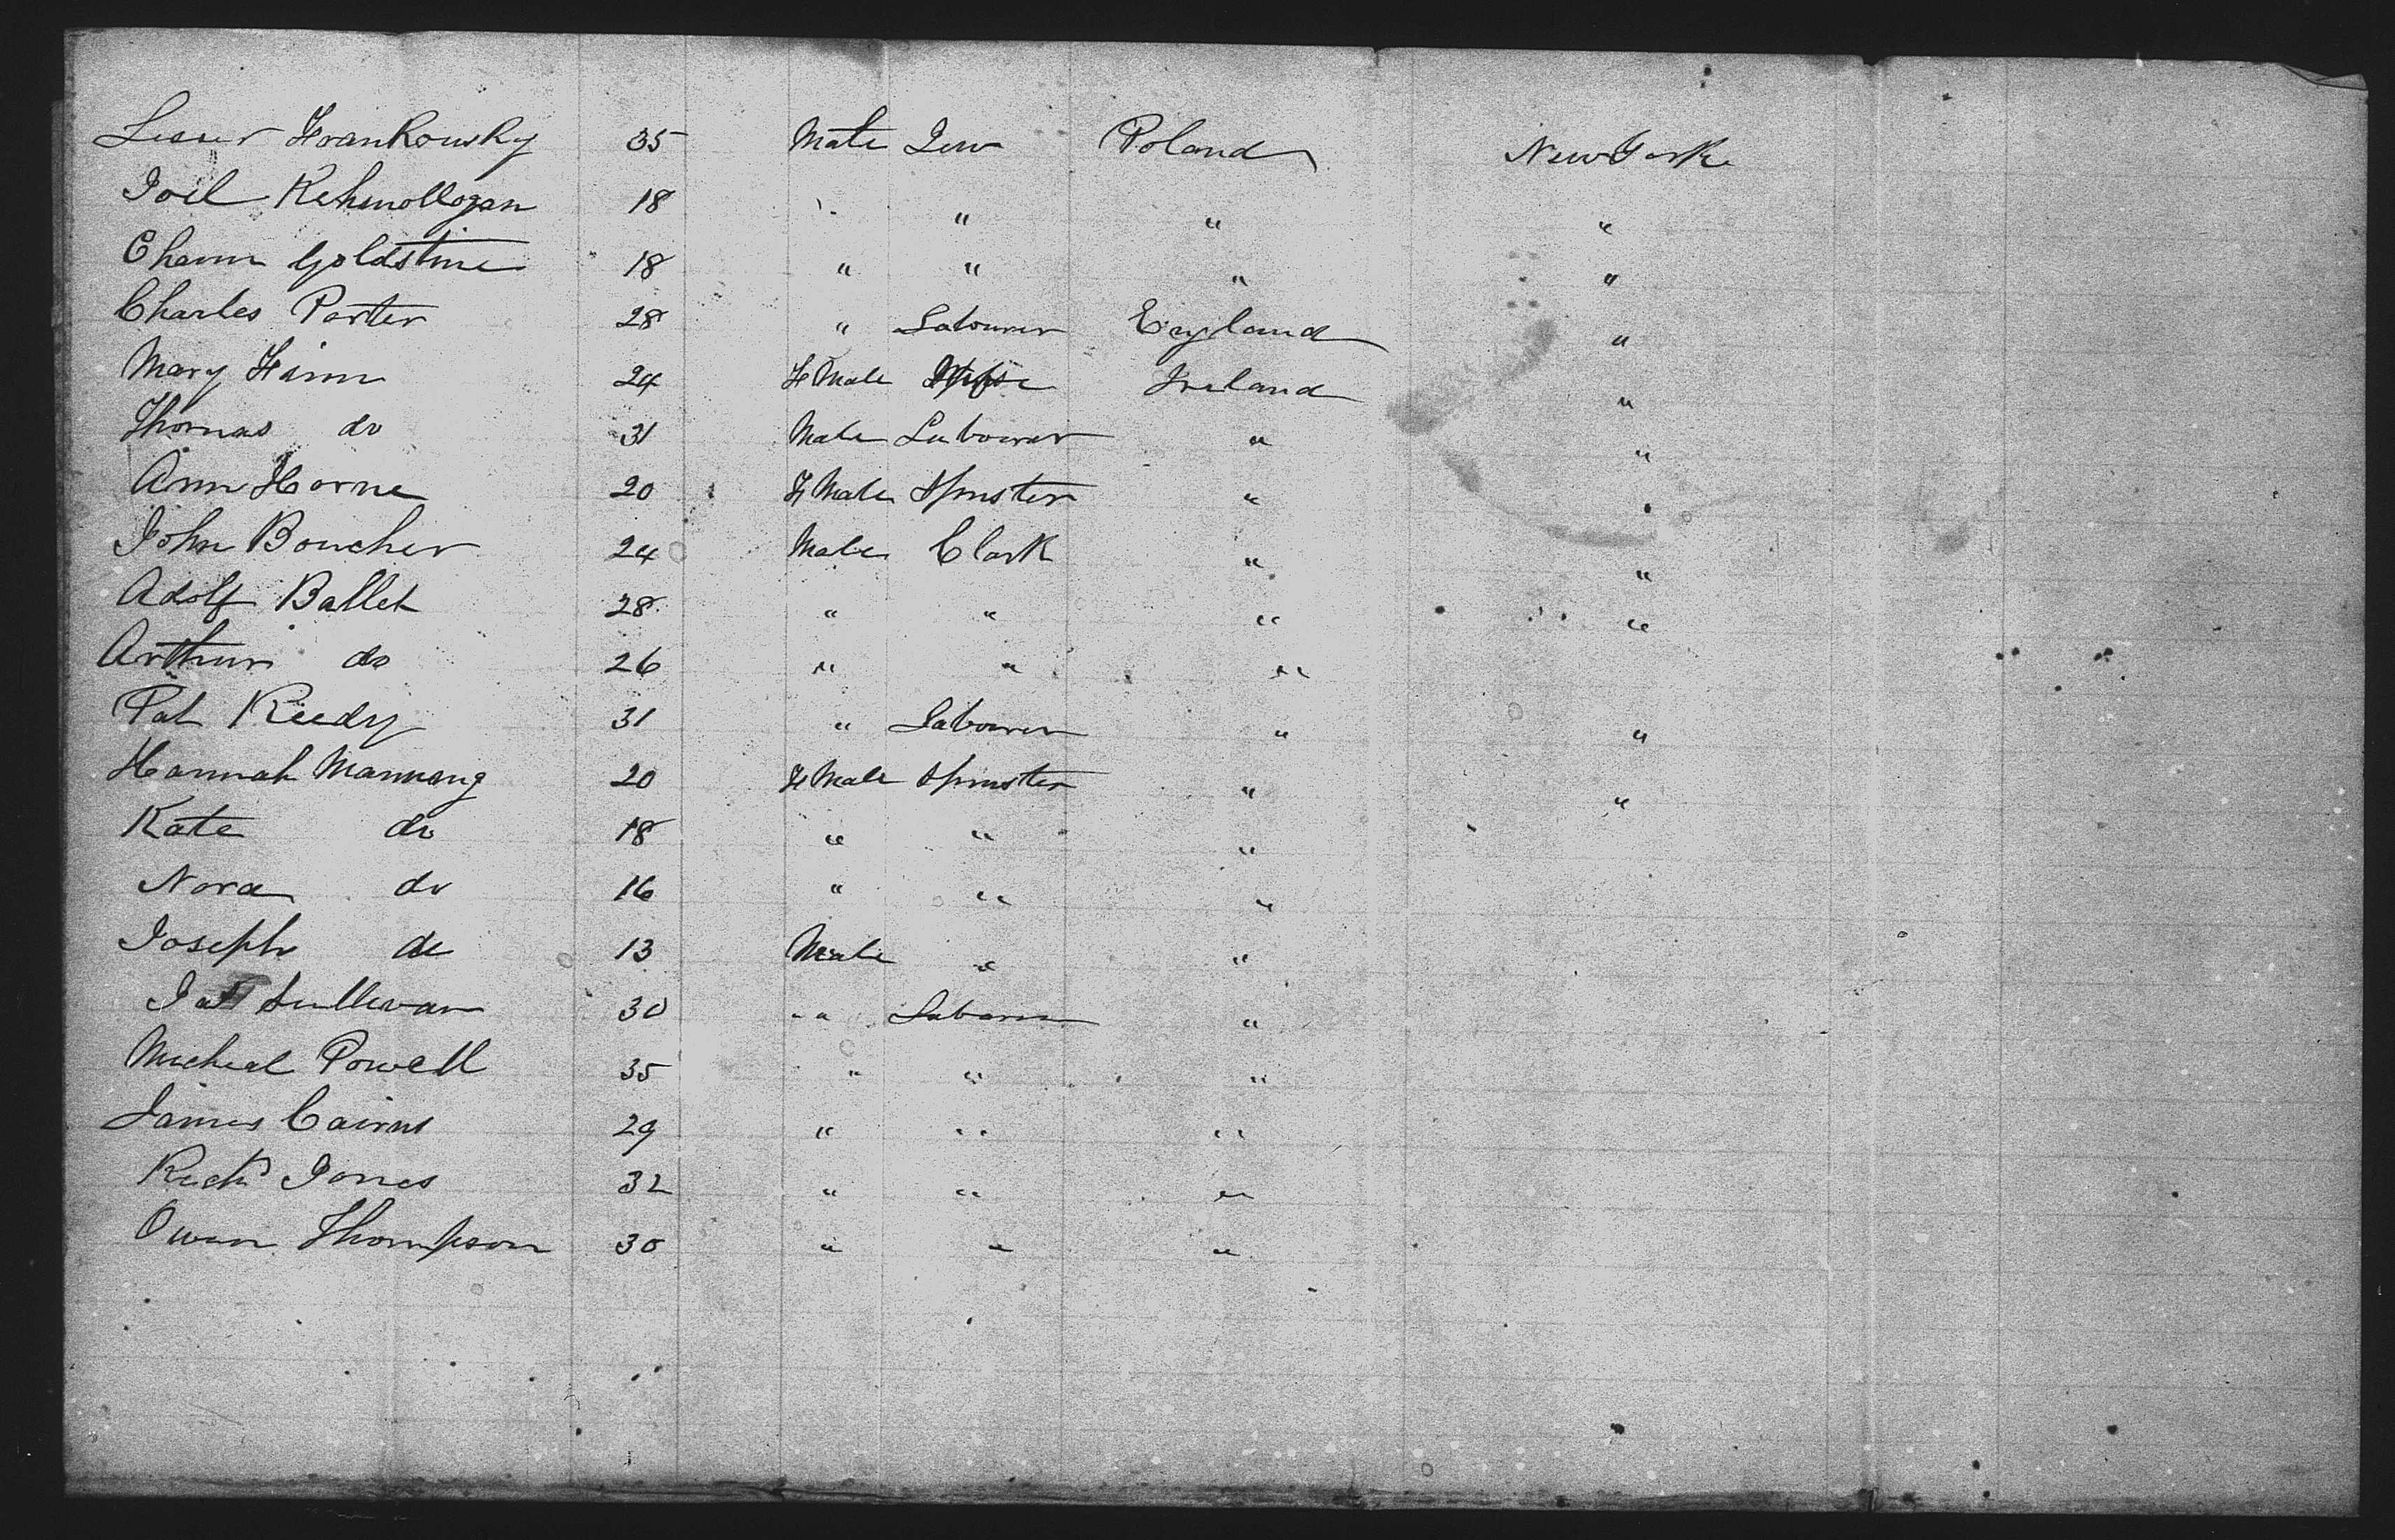 Lesser Frankowsky 35 Male Jew Poland New York
Joel 18 " " " "
Chaim Goldstine 18 " " " "
Charles Porter 28 " Labourer England "
Mary Finn 24 FMale Wife Ireland "
Thomas do 31 Male Labourer " "
Ann Horne 20 FMale Spinster "
John Boucher 24 Male Clark " "
Adolf Ballet 28 " " " "
Arthur do 26 " " "
Pat Reedy 31 " Labourer " "
Hannah Mannang 20 FMale Spinster " "
Kate do 18 " " "
Nora do 16 " " "
Joseph do 13 Male " "
Pat Sullivan 30 " Labourer "
Micheal Powell 35 " " "
James Cairns 29 " " "
Richd Jones 32 " " "
Owen Thompson 30 " " "